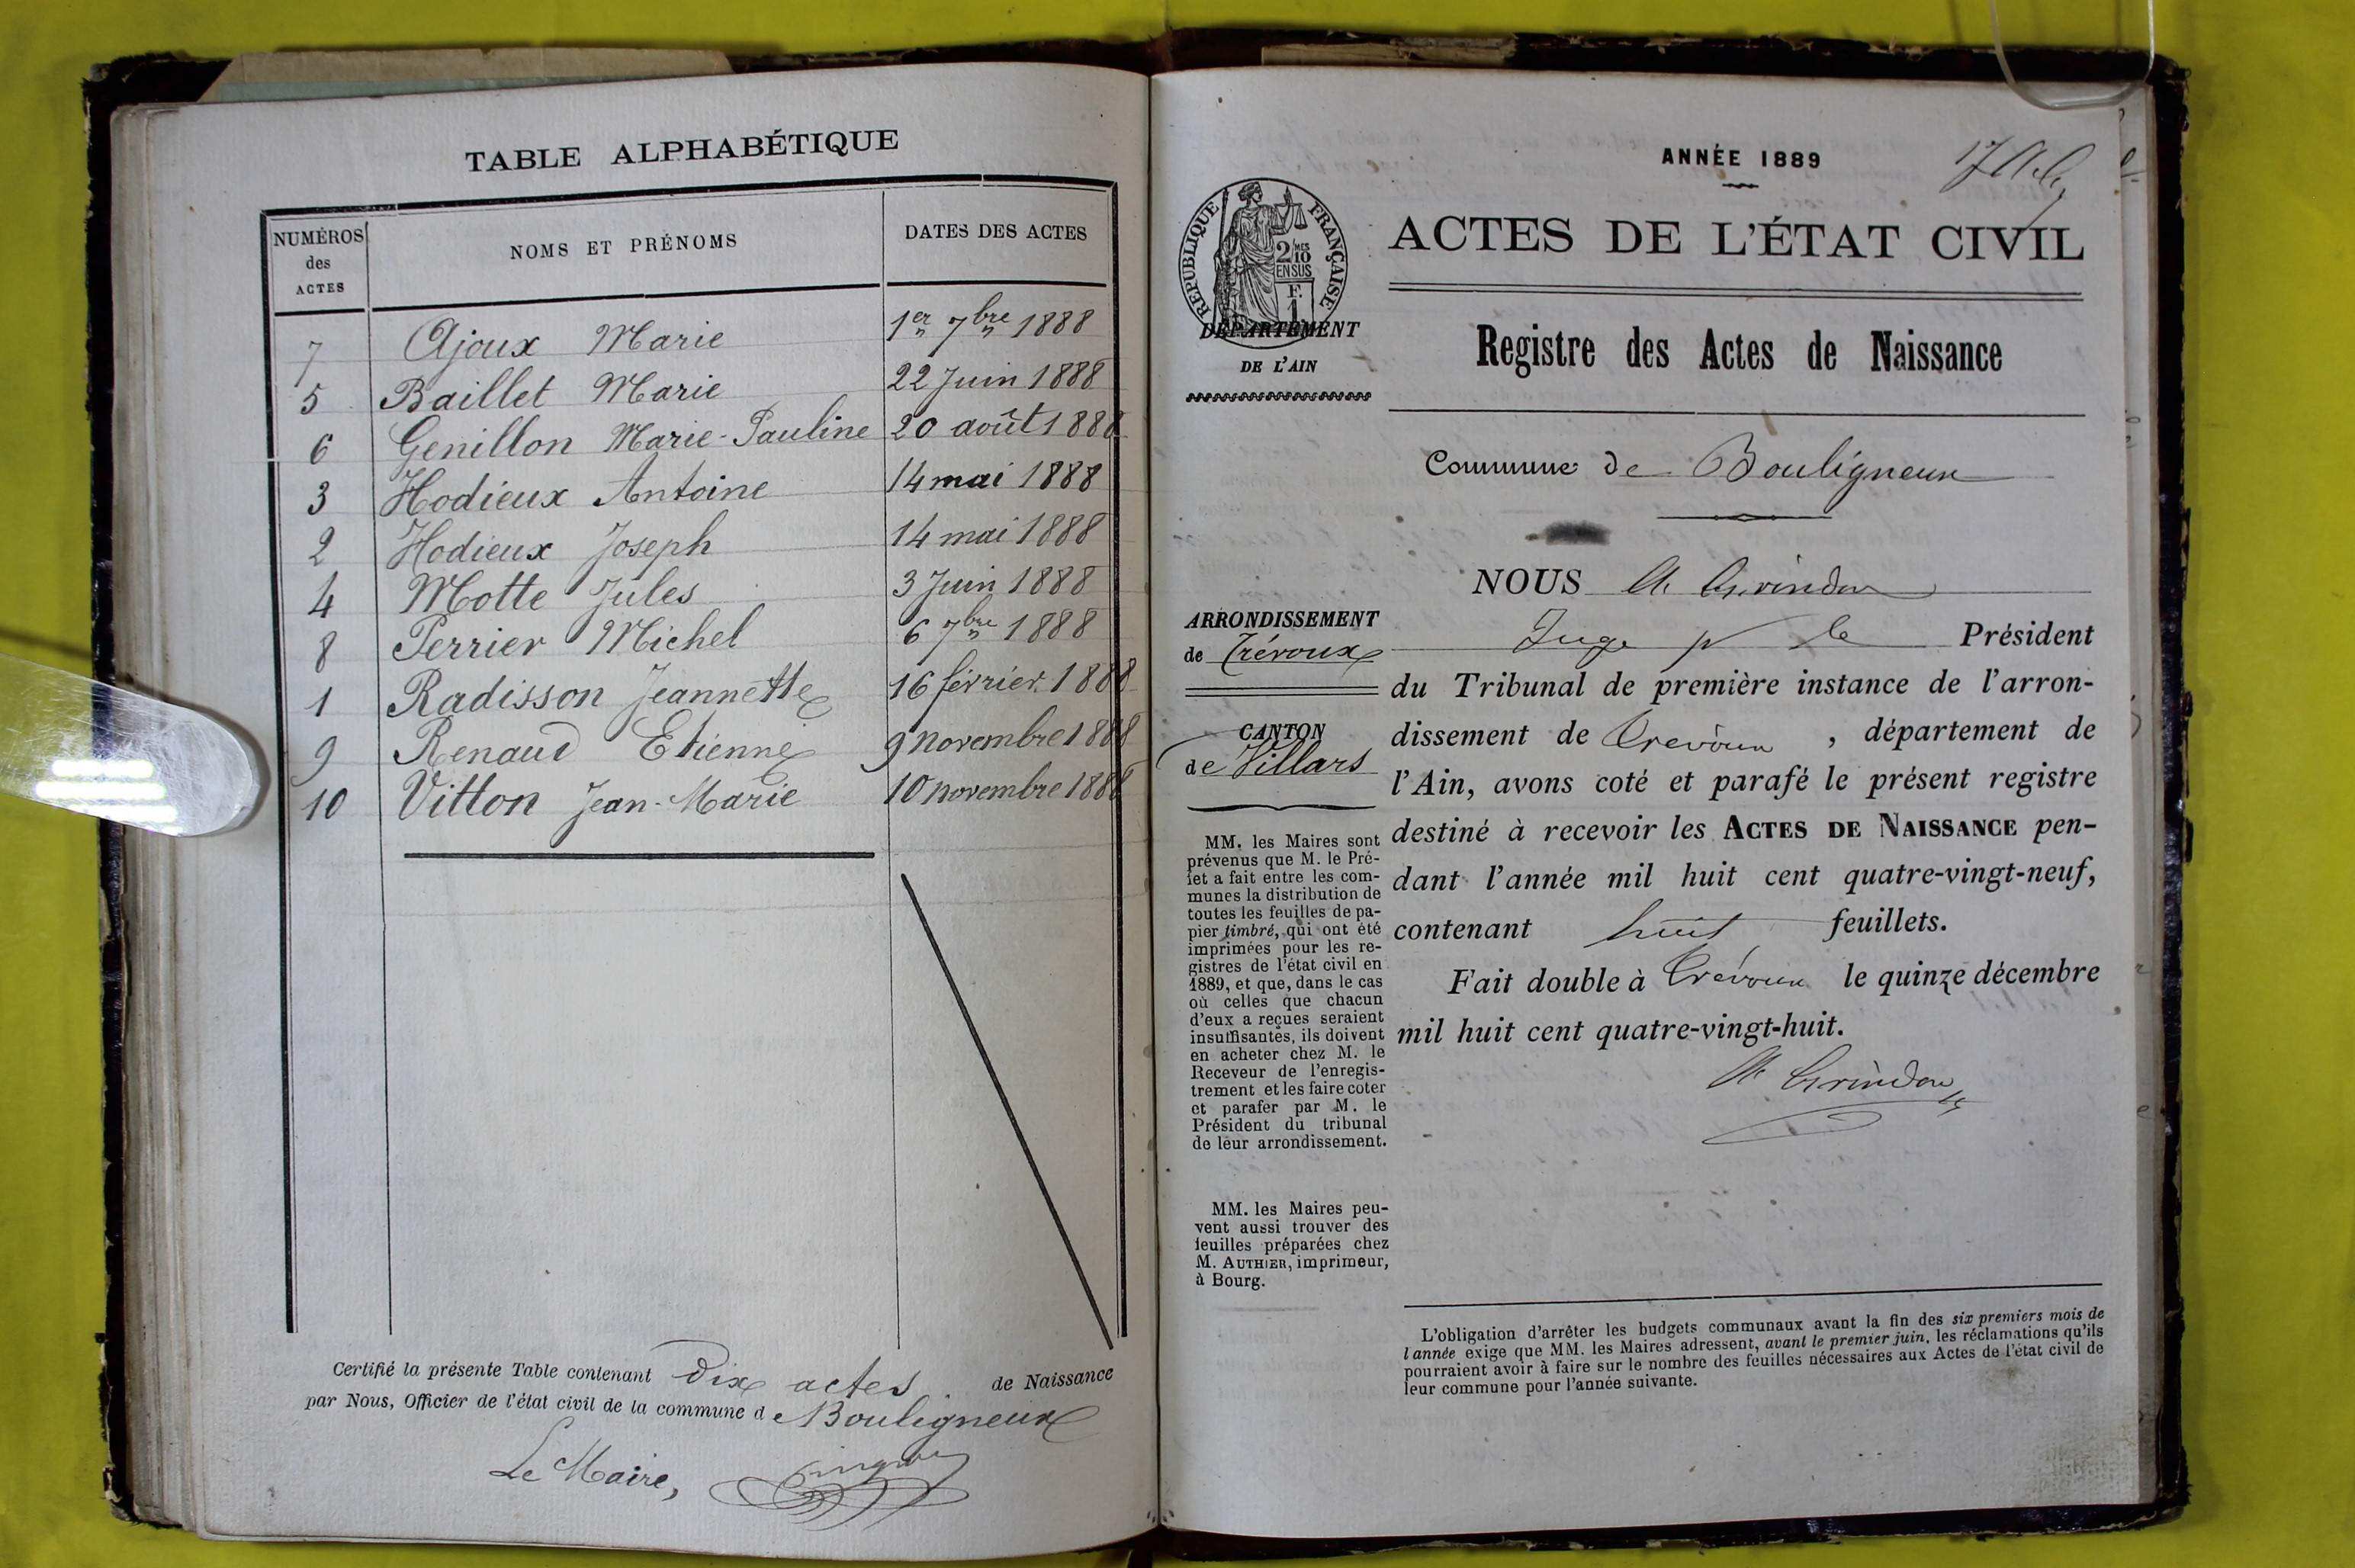 TABLE ALPHABÉTIQUE
NUMÉROS des ACTES NOMS ET PRÉNOMS DATES DES ACTES
7 Ajoux Marie 1er 7bre 1888
5 Baillet Marie 22 Juin 1888
6 Genillon Marie-Pauline 20 août 1888
3 Hodieux Antoine 14 mai 1888
2 Hodieux Joseph 14 mai 1888
4 Motte Jules 3 Juin 1888
8 Perrier Michel 6 7bre 1888
1 Radisson Jeannette 16 février 1888
9 Renaud Etienne 9 novembre 1888
10 Vitton Jean-Marie 10 novembre 1888
Certifié la présente Table contenant Dix actes de Naissance
par Nous, Officier de l'état civil de la commune de Bouligneux
Le Maire,
ANNÉE 1889
RÉPUBLIQUE FRANÇAISE
2/10 MES
EN SUS
F.
1
ACTES DE L'ÉTAT CIVIL
DÉPARTEMENT
DE L'AIN
Registre des Actes de Naissance
Commune de Bouligneux
ARRONDISSEMENT
de Trévoux
CANTON
de Villars
MM. les Maires sont
prévenus que M. le Pré-
fet a fait entre les com-
munes la distribution de
toutes les feuilles de pa-
pier timbré, qui ont été
imprimées pour les re-
gistres de l'état civil en
1889, et que, dans le cas
où celles que chacun
d'eux a reçues seraient
insuffisantes, ils doivent
en acheter chez M. le
Receveur de l'enregis-
trement et les faire coter
et parafer par M. le
Président du tribunal
de leur arrondissement.
MM. les Maires peu-
vent aussi trouver des
feuilles préparées chez
M. AUTHIER, imprimeur,
à Bourg.
NOUS Grindon
Juge pr le Président
du Tribunal de première instance de l'arron-
dissement de Trévoux, département de
l'Ain, avons coté et parafé le présent registre
destiné à recevoir les ACTES DE NAISSANCE pen-
dant l'année mil huit cent quatre-vingt-neuf,
contenant huit feuillets.
Fait double à Trévoux le quinze décembre
mil huit cent quatre-vingt-huit.
Grindon
L'obligation d'arrêter les budgets communaux avant la fin des six premiers mois de
l'année exige que MM. les Maires adressent, avant le premier juin, les réclamations qu'ils
pourraient avoir à faire sur le nombre des feuilles nécessaires aux Actes de l'état civil de
leur commune pour l'année suivante.